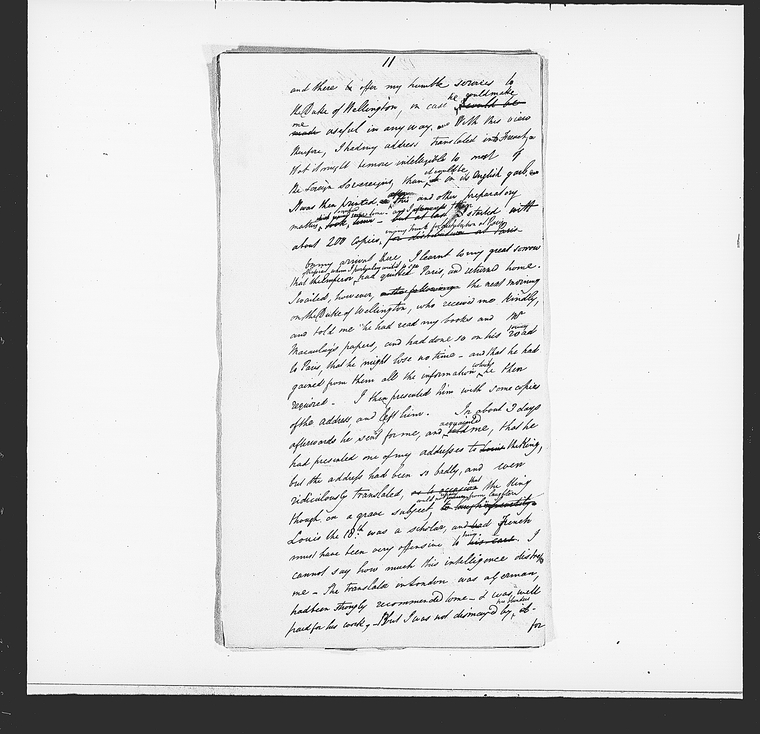 11
and there to offer my humble services to
the Duke of Wellington, in case he could make
me useful in any way. With this view
therefore, I had my address translated into French,
that it might be more intelligible to most of
the foreign Sovereigns, than it would be in its English garb,
It was then printed this and other preparatory
matters, took, time but at last I started with
about 200 Copies, for distribution at Paris
On my arrival there I learnt to my great sorrow
that the Emperor had quitted Paris, and returned home.
I waited, however, the next morning
on the Duke of Wellington, who received me kindly,
and told me he had read my books and Mr
Macaulay's papers, and had done so on his road
to Paris, that he might lose no time - and that he had
gained from them all the information which he then
required - I then presented him with some copies
of the address, and left him. In about 3 days
afterwards he sent for me, and acquainted me, that he
had presented one of my addresses to the King,
but the address had been so badly, and even
ridiculously translated, that the King
though on a grave subject, could from laughter
Louis the 18th was a scholar, and French
must have been very offensive to his ears. I
cannot say how much this intelligence distress
me - The translator in London was a German,
had been strongly recommended to me - & was well
paid for his work, - But I was not dismayed by his blunders it -
for